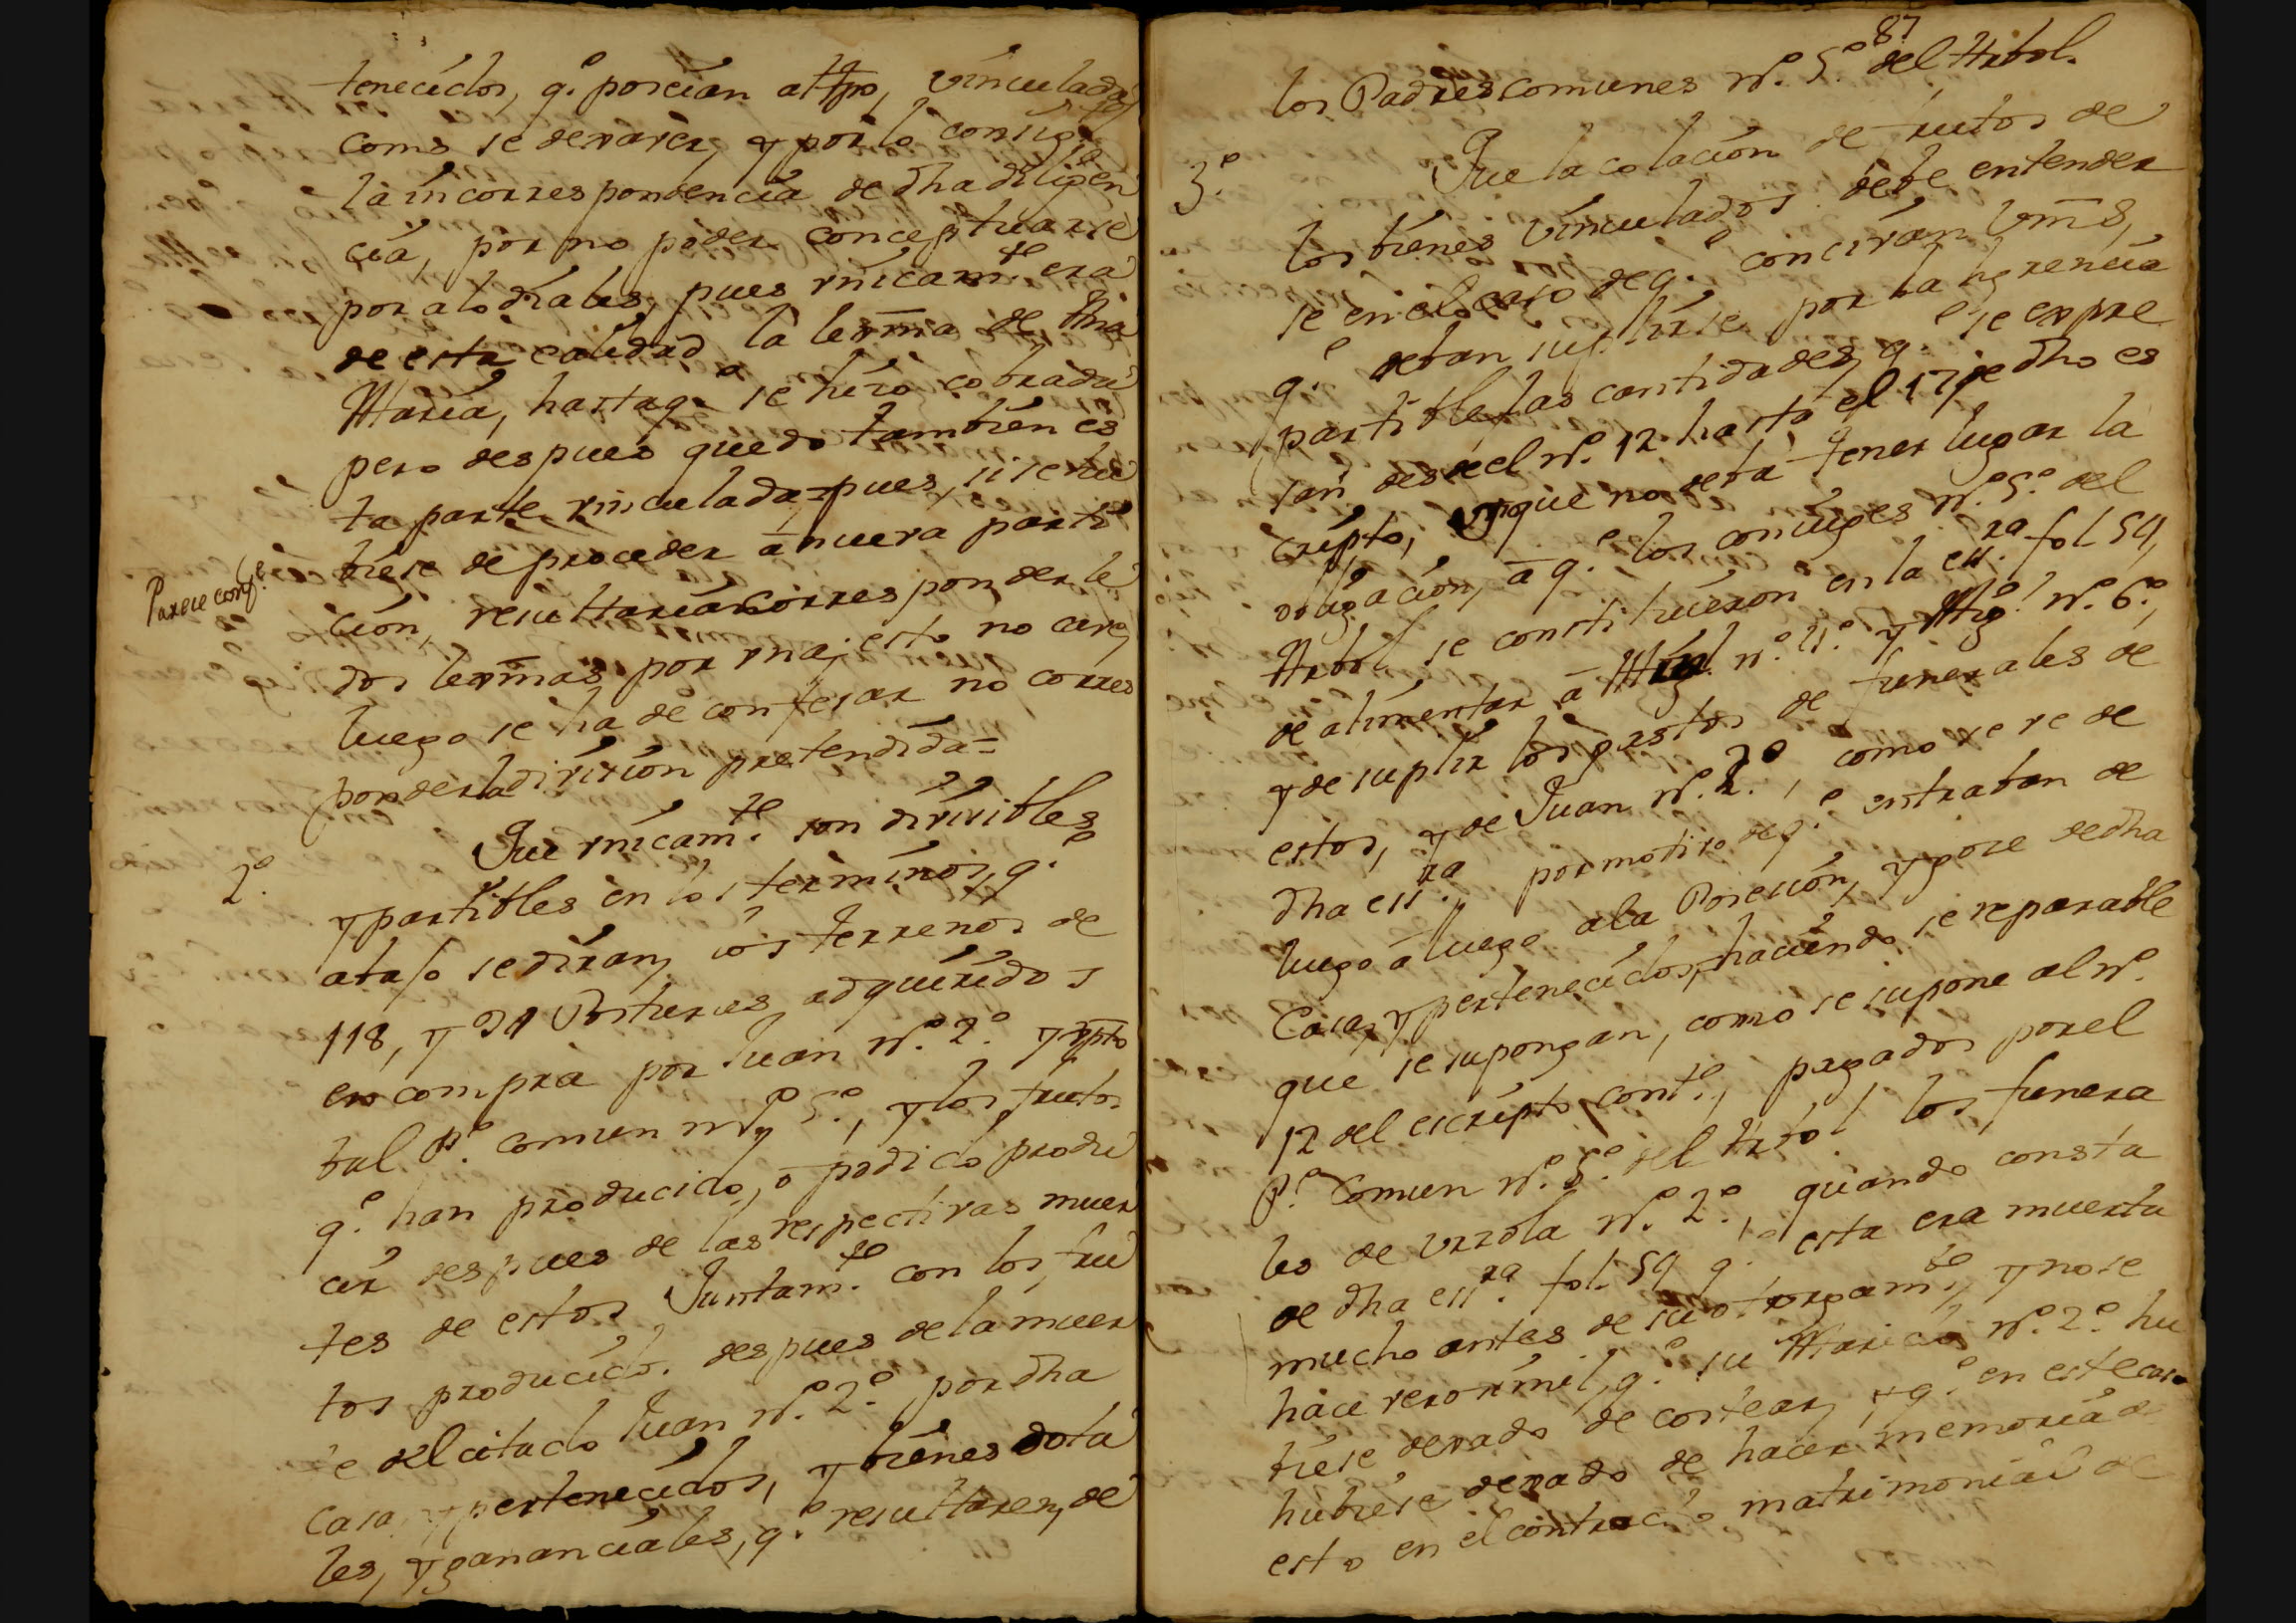 tenecidos, q.e poseian al tpo, vinculados
como se dexa ver, y por lo consig.te
la incorrespondencia de dha diligen
cia, por no poder conceptuarse
por alodiales, pues vnicam.te era
de esta calidad la lexma de dha
Maria, hasta q.e se hizo cobrada
pero despues quedo tambien es
ta parte vinculada, pues, si se hu
biese de proceder a nueva parti
Parece conf.e
cion, resultaria corresponderle
dos lexmas por vna; esto no cave,
luego se ha de confesar no corres
ponder la division pretendida=
2.o Que vnicam.te son divisibles
y partibles en los terminos, q.e
abajo se diran, los terrenos de
118, y 91 Posturas adquiridos
en compra por Juan N.o 2.o y rpto
tal P.e comun N.o 5.o, y los frutos
q.e han producido, o podido produ
cir despues de las respectivas muer
tes de estos Juntam.te con los fru
tos producido. despues de la muer
te del citado Juan N.o 2.o por dha
Casa, y pertenecidos, y bienes dota
les, y gananciales, q.e resultaren, de
87
los Padres comunes N.o 5.o del Arbol.
3.o Que la colacion de frutos de
los bienes vinculados debe entender
se en el caso de q.e concivan Vms,
q.e deban suplirse por la herencia
partible, las cantidades, q.e se expre
san desde el N.o 12 hasta el 17 de dho es
cripto, y que no debà tener lugar la
obligacion, a q.e los conjuges N.o 5.o del
Arbol se constituieron en la ess.ra fol. 59,
de alimentar a N.o 4.o y Mig.l N.o 6.o,
y de suplir los gastos de funerales de
estos, y de Juan N.o 2.o, como se ve de
dha ess.ra por motivo de q.e entraban de
luego a luego a la Posesion, y goze de dha
Casa, y pertenecidos, haciendo se reparable
que se supongan, como se supone al N.o
12 del escripto cont.o, pagados por el
P.e Comun N.o 5.o del Arbol los funera
les de Vrzola N.o 2.o, quando consta
de dha ess.ra fol. 59 q.e esta era muerta
mucho antes de su otorgam.to, y no se
hace verosimil, q.e su Marido N.o 2.o hu
biese dexado de costear, y q.e en este caso
hubiese dexado de hacer memoria de
esto en el contracto matrimonial de